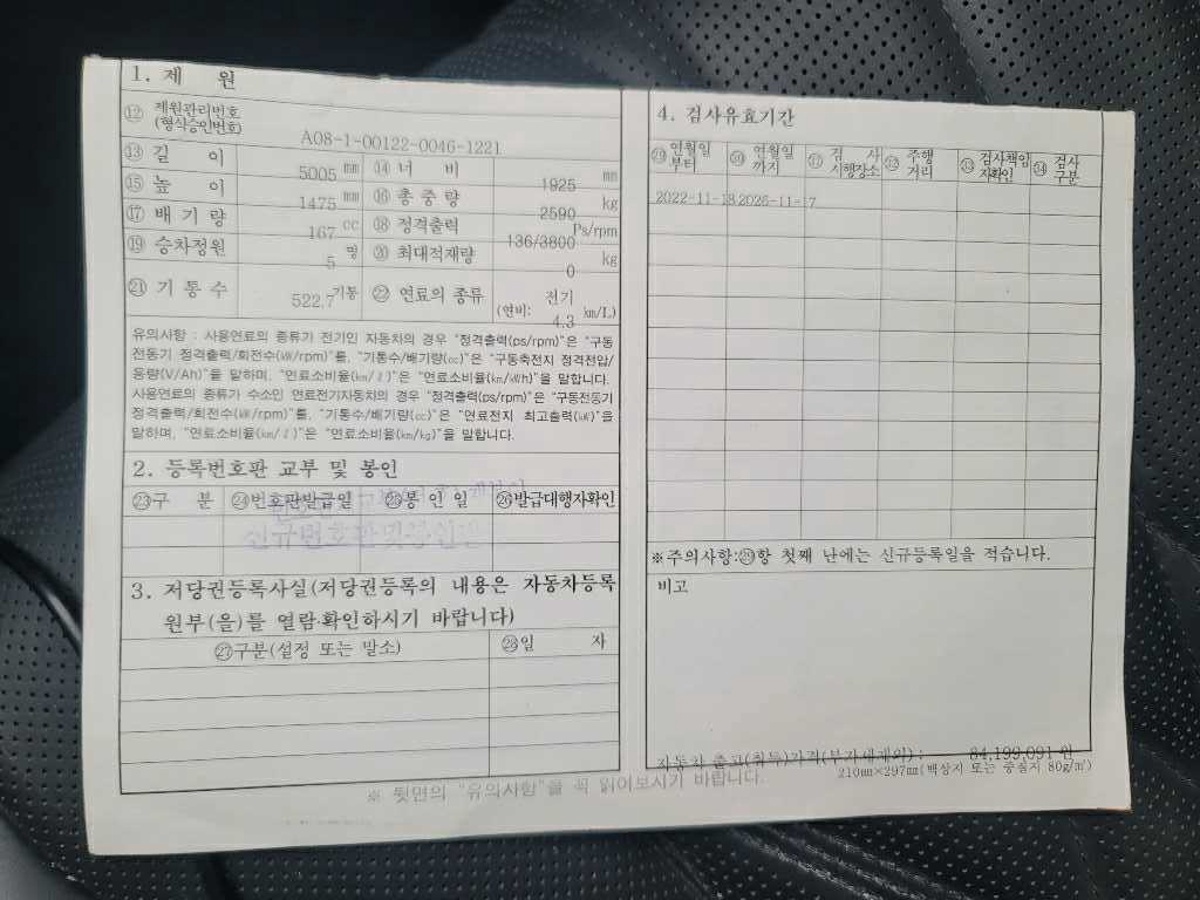 1. 제 원
⑫ 제원관리번호
(형식승인번호)
A08-1-00122-0046-1221
⑬ 길 이 5005 mm ⑭ 너 비 1925 mm
⑮ 높 이 1475 mm ⑯ 총 중 량 2590 kg
⑰ 배 기 량 167 cc ⑱ 정격출력 136/3800 Ps/rpm
⑲ 승차정원 5 명 ⑳ 최대적재량 0 kg
㉑ 기 통 수 522.7 기통 ㉒ 연료의 종류 전기
(연비: 4.3 km/L)
유의사항 : 사용연료의 종류가 전기인 자동차의 경우 "정격출력(ps/rpm)"은 "구동
전동기 정격출력/회전수(kW/rpm)"를, "기통수/배기량(cc)"은 "구동축전지 정격전압/
용량(V/Ah)"을 말하며, "연료소비율(km/ℓ)"은 "연료소비율(km/kWh)"을 말합니다.
사용연료의 종류가 수소인 연료전기자동차의 경우 "정격출력(ps/rpm)"은 "구동전동기
정격출력/회전수(kW/rpm)"를, "기통수/배기량(cc)"은 "연료전지 최고출력(kW)"을
말하며, "연료소비율(km/ℓ)"은 "연료소비율(km/kg)"을 말합니다.
2. 등록번호판 교부 및 봉인
㉓구 분 ㉔번호판발급일 ㉕봉 인 일 ㉖발급대행자확인
신규번호판및봉인필
3. 저당권등록사실(저당권등록의 내용은 자동차등록
원부(을)를 열람·확인하시기 바랍니다)
㉗구분(설정 또는 말소) ㉘일 자
4. 검사유효기간
㉙ 연월일
부터
㉚ 연월일
까지
㉛ 검 사
시행장소
㉜ 주행
거리
㉝ 검사책임
자확인
㉞ 검사
구분
2022-11-18 2026-11-17
※주의사항:㉙항 첫째 난에는 신규등록일을 적습니다.
비고
자동차 출고(취득)가격(부가세제외) : 84,199,091 원
210mm×297mm(백상지 또는 중질지 80g/㎡)
※ 뒷면의 "유의사항"을 꼭 읽어보시기 바랍니다.